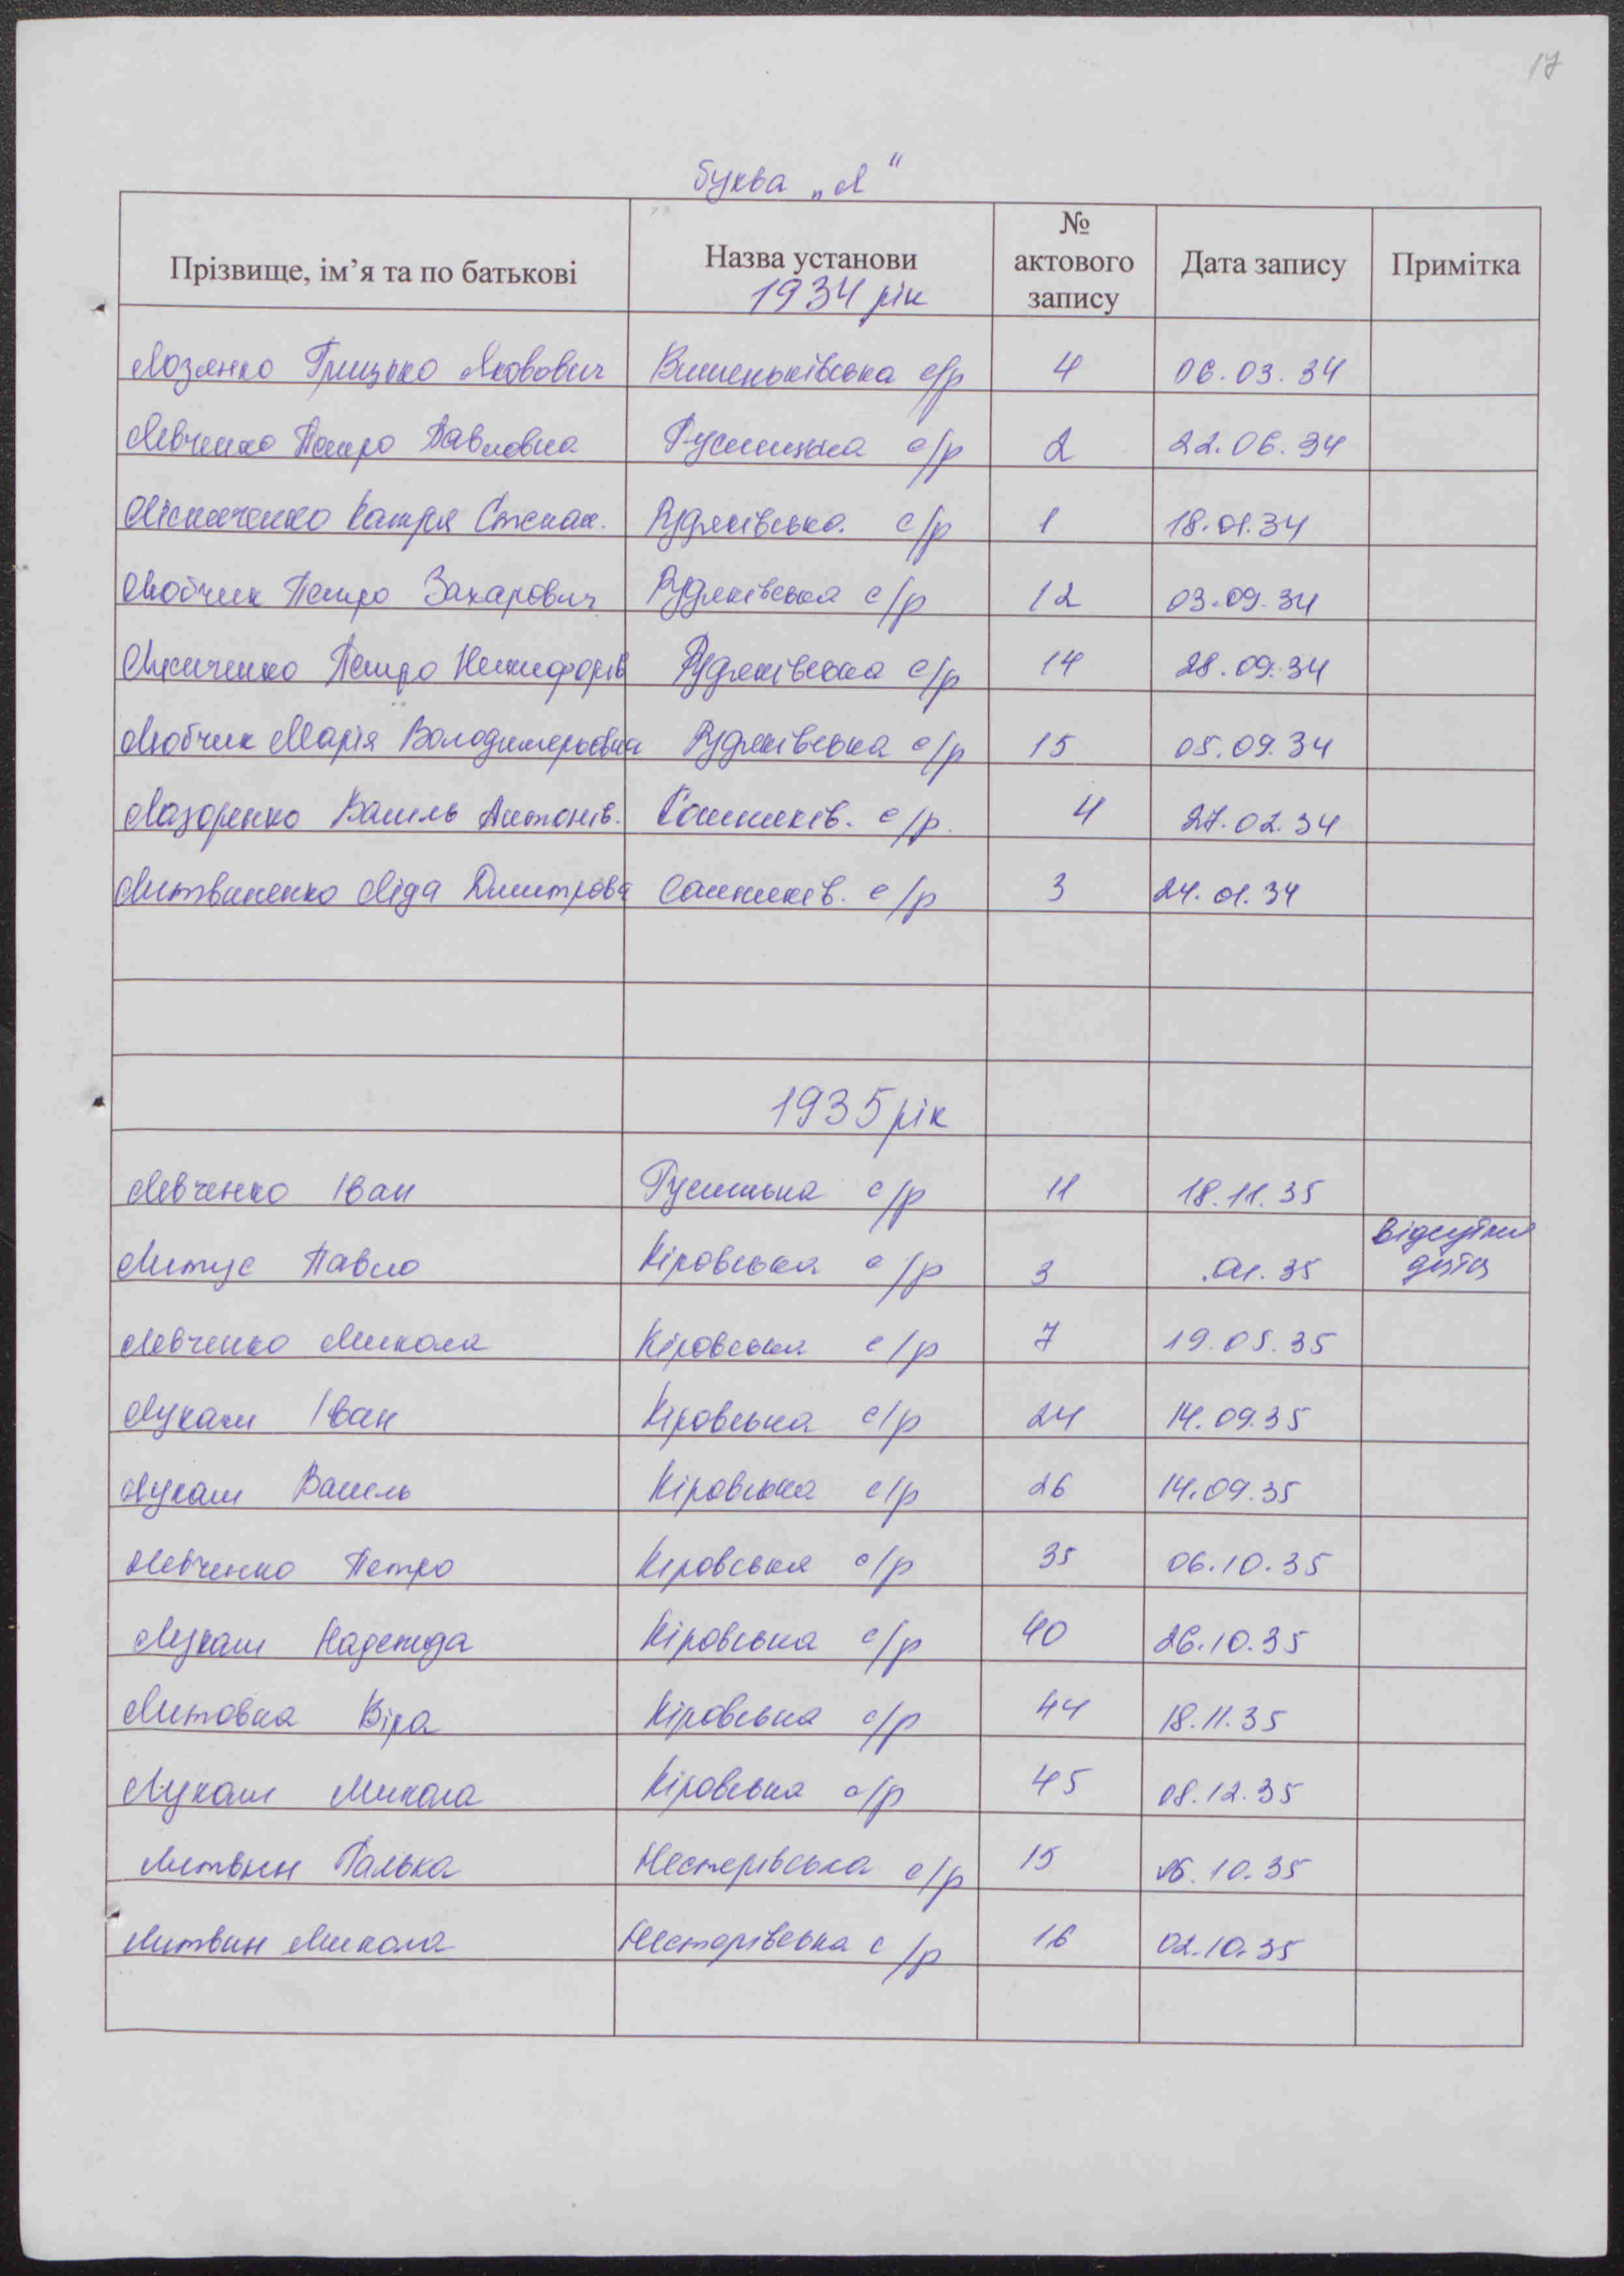 17
буква „Л"
Прізвище, ім'я та по батькові Назва установи 1934 рік № актового запису Дата запису Примітка
Лозенко Грицько Якович Вишеньківська с/р 4 06.03.34
Левченко Петро Павловна с/р 2 22.06.34
Катря Степан. Рудяківська с/р 1 18.01.34
Любчик Петро Захарович Рудяківська с/р 12 03.09.34
Петро Никифорів Рудяківська с/р 14 28.09.34
Любчик Марія Володимерьовна Рудяківська с/р 15 05.09.34
Лазоренко Василь Антонів. Сошників. с/р. 4 27.02.34
Литвиненко Ліда Дмитрова Сошників. с/р 3 24.01.34
1935 рік
Левченко Іван с/р 11 18.11.35
Литус Павло Кіровська с/р 3 .01.35 відсутня дата
Левченко Микола Кіровська с/р 7 19.05.35
Лукаш Іван Кіровська с/р 24 14.09.35
Лукаш Василь Кіровська с/р 26 14.09.35
Левченко Петро Кіровська с/р 35 06.10.35
Лукаш Надежда Кіровська с/р 40 26.10.35
Литовка Віра Кіровська с/р 44 18.11.35
Лукаш Микола Кіровська с/р 45 08.12.35
Литвин Галька Нестерівська с/р 15 10.35
Литвин Микола Нестерівська с/р 16 02.10.35